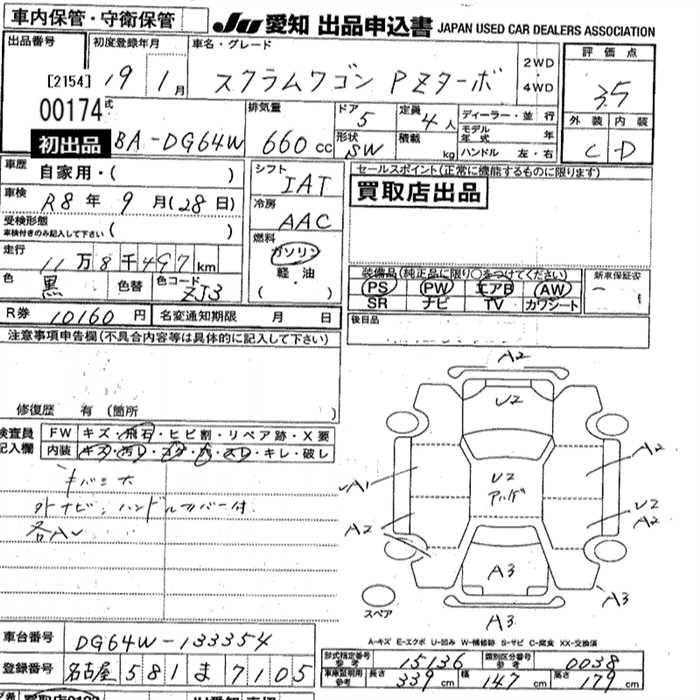 車内保管・守衛保管
JU 愛知 出品申込書 JAPAN USED CAR DEALERS ASSOCIATION
出品番号 初度登録年月 車名・グレード 評価点
[2154] 19年1月 スクラムワゴン PZターボ 2WD・4WD 3.5
00174 式 排気量 ドア 5 定員 4人 ディーラー・並行 外装 内装
初出品 BA-DG64W 660cc 形状 SW 積載 kg モデル年式 年 C D
ハンドル 左・右
車歴 自家用・( ) シフト IAT セールスポイント(正常に機能するものに限ります)
車検 R8年9月(28日) 冷房 AAC 買取店出品
受検形態 車検付きのみ記入して下さい ( )
走行 11万8千497km 燃料 ガソリン・軽油 ( )
色 黒 色替 色コード ZJ3
装備品(純正品に限り○をつけてください) 新車保証書
PS PW エアB AW
SR ナビ TV カワシート
R券 10160円 名変通知期限 月 日 後日品
注意事項申告欄(不具合内容等は具体的に記入して下さい)
修復歴 有(箇所 )
検査員記入欄 FW キズ・飛石・ヒビ割・リペア跡・X要
内装 キズ・汚レ・コゲ・穴・スレ・キレ・破レ
外ナビ、ハンドルカバー付
A2
U2
A1
A2
U2
アルデ
A2
U2
A2
A3
A3
A3
スペア
A-キズ E-エクボ U-凹み W-補修跡 S-サビ C-腐食 XX-交換済
車台番号 DG64W-133354
登録番号 名古屋 581 ま 7105
型式指定番号 参考 15136 類別区分番号 参考 0038
車庫証明用 参考 長さ 339cm 幅 147cm 高さ 179cm